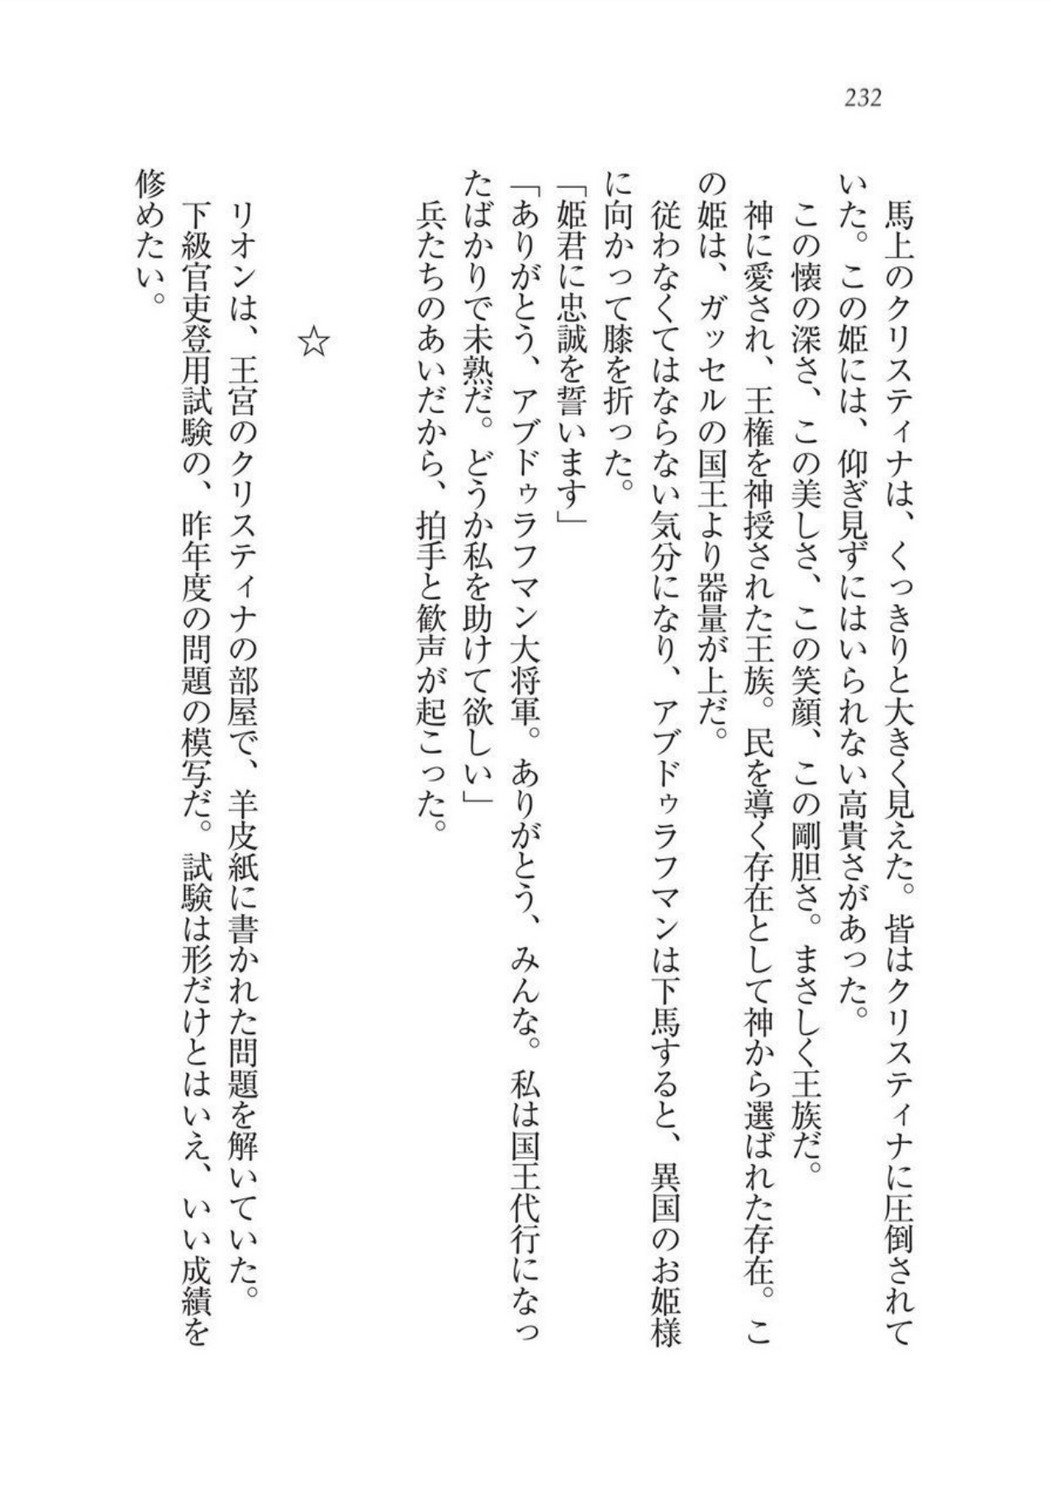 232
馬上のクリスティナは、くっきりと大きく見えた。皆はクリスティナに圧倒されて
いた。この姫には、仰ぎ見ずにはいられない高貴さがあった。
この懐の深さ、この美しさ、この笑顔、この剛胆さ。まさしく王族だ。
神に愛され、王権を神授された王族。民を導く存在として神から選ばれた存在。こ
の姫は、ガッセルの国王より器量が上だ。
従わなくてはならない気分になり、アブドゥラフマンは下馬すると、異国のお姫様
に向かって膝を折った。
「姫君に忠誠を誓います」
「ありがとう、アブドゥラフマン大将軍。ありがとう、みんな。私は国王代行になっ
たばかりで未熟だ。どうか私を助けて欲しい」
兵たちのあいだから、拍手と歓声が起こった。
☆
リオンは、王宮のクリスティナの部屋で、羊皮紙に書かれた問題を解いていた。
下級官吏登用試験の、昨年度の問題の模写だ。試験は形だけとはいえ、いい成績を
修めたい。